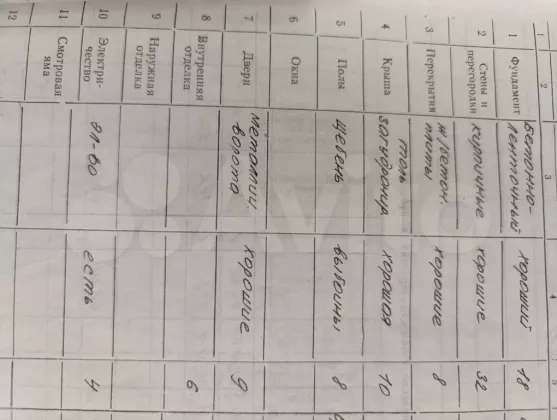 1 2 3 4 5
1 Фундамент Бетонно-ленточный хороший 18
2 Стены и перегородки кирпичные хорошие 32
3 Перекрытия ж/бетон. плиты хорошие 8
4 Крыша толь хорошая 10
5 Полы щебень выбоины 8
6 Окна
7 Двери металлич. ворота хорошие 9
8 Внутренняя отделка 6
9 Наружная отделка
10 Электричество эл-во есть 4
11 Смотровая яма
12